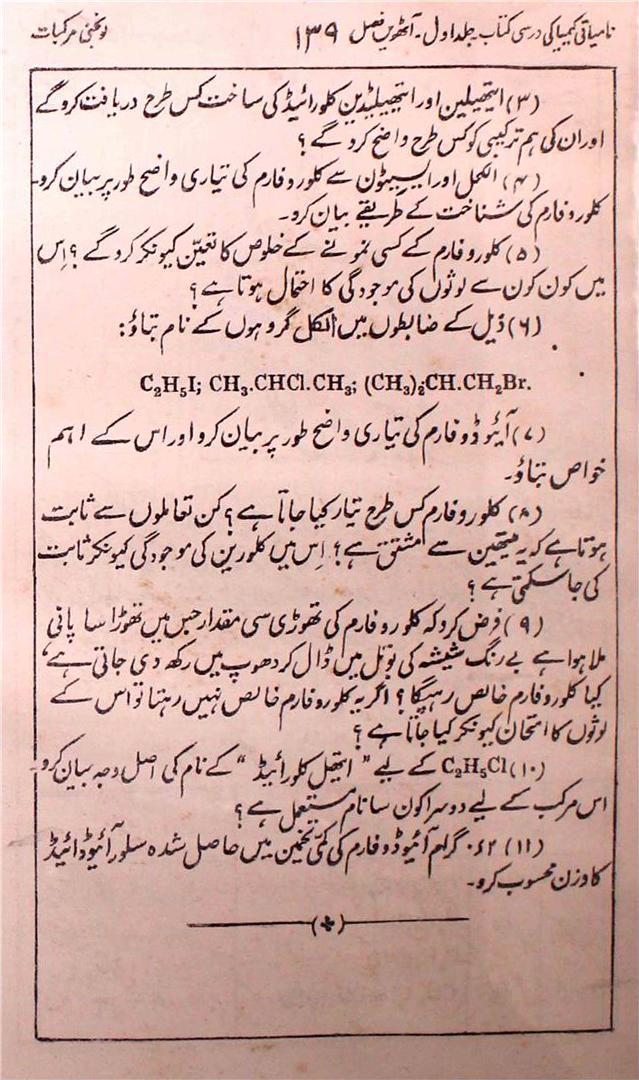 نامیاتی کیمیا کی درسی کتاب جلد اول۔ آٹھویں فصل ۱۳۹ لونجنی مرکبات
(۳) ایتھیلین اور ایتھیلیڈین کلورائیڈ کی ساخت کس طرح دریافت کرو گے
اور ان کی ہم ترکیبی کو کس طرح واضح کرو گے؟
(۴) الکحل اور ایسیٹون سے کلوروفارم کی تیاری واضح طور پر بیان کرو۔
کلوروفارم کی شناخت کے طریقے بیان کرو۔
(۵) کلوروفارم کے کسی نمونے کے خلوص کا تعیّن کیونکر کرو گے؟ اِس
میں کون کون سے لوثوں کی موجودگی کا احتمال ہوتا ہے؟
(۶) ذیل کے ضابطوں میں الکل گروہوں کے نام بتاؤ:
C₂H₅I; CH₃.CHCl.CH₃; (CH₃)₂CH.CH₂Br.
(۷) آیُوڈو فارم کی تیاری واضح طور پر بیان کرو اور اس کے اہم
خواص بتاؤ۔
(۸) کلوروفارم کس طرح تیار کیا جاتا ہے؟ کن تعاملوں سے ثابت
ہوتا ہے کہ یہ میتھین سے مشتق ہے؟ اِس میں کلورین کی موجودگی کیونکر ثابت
کی جا سکتی ہے؟
(۹) فرض کرو کہ کلوروفارم کی تھوڑی سی مقدار جس میں تھوڑا سا پانی
ملا ہوا ہے بے رنگ شیشہ کی بوتل میں ڈال کر دھوپ میں رکھ دی جاتی ہے،
کیا کلوروفارم خالص رہیگا؟ اگر یہ کلوروفارم خالص نہیں رہتا تو اس کے
لوثوں کا امتحان کیونکر کیا جاتا ہے؟
(۱۰) C₂H₅Cl کے لیے "ایتھل کلورائیڈ" کے نام کی اصل وجہ بیان کرو۔
اس مرکب کے لیے دوسرا کون سا نام مستعمل ہے؟
(۱۱) ۰۶۲ گرام آئیوڈو فارم کی کمّی تخمین میں حاصل شدہ سلور آئیوڈائیڈ
کا وزن محسوب کرو۔